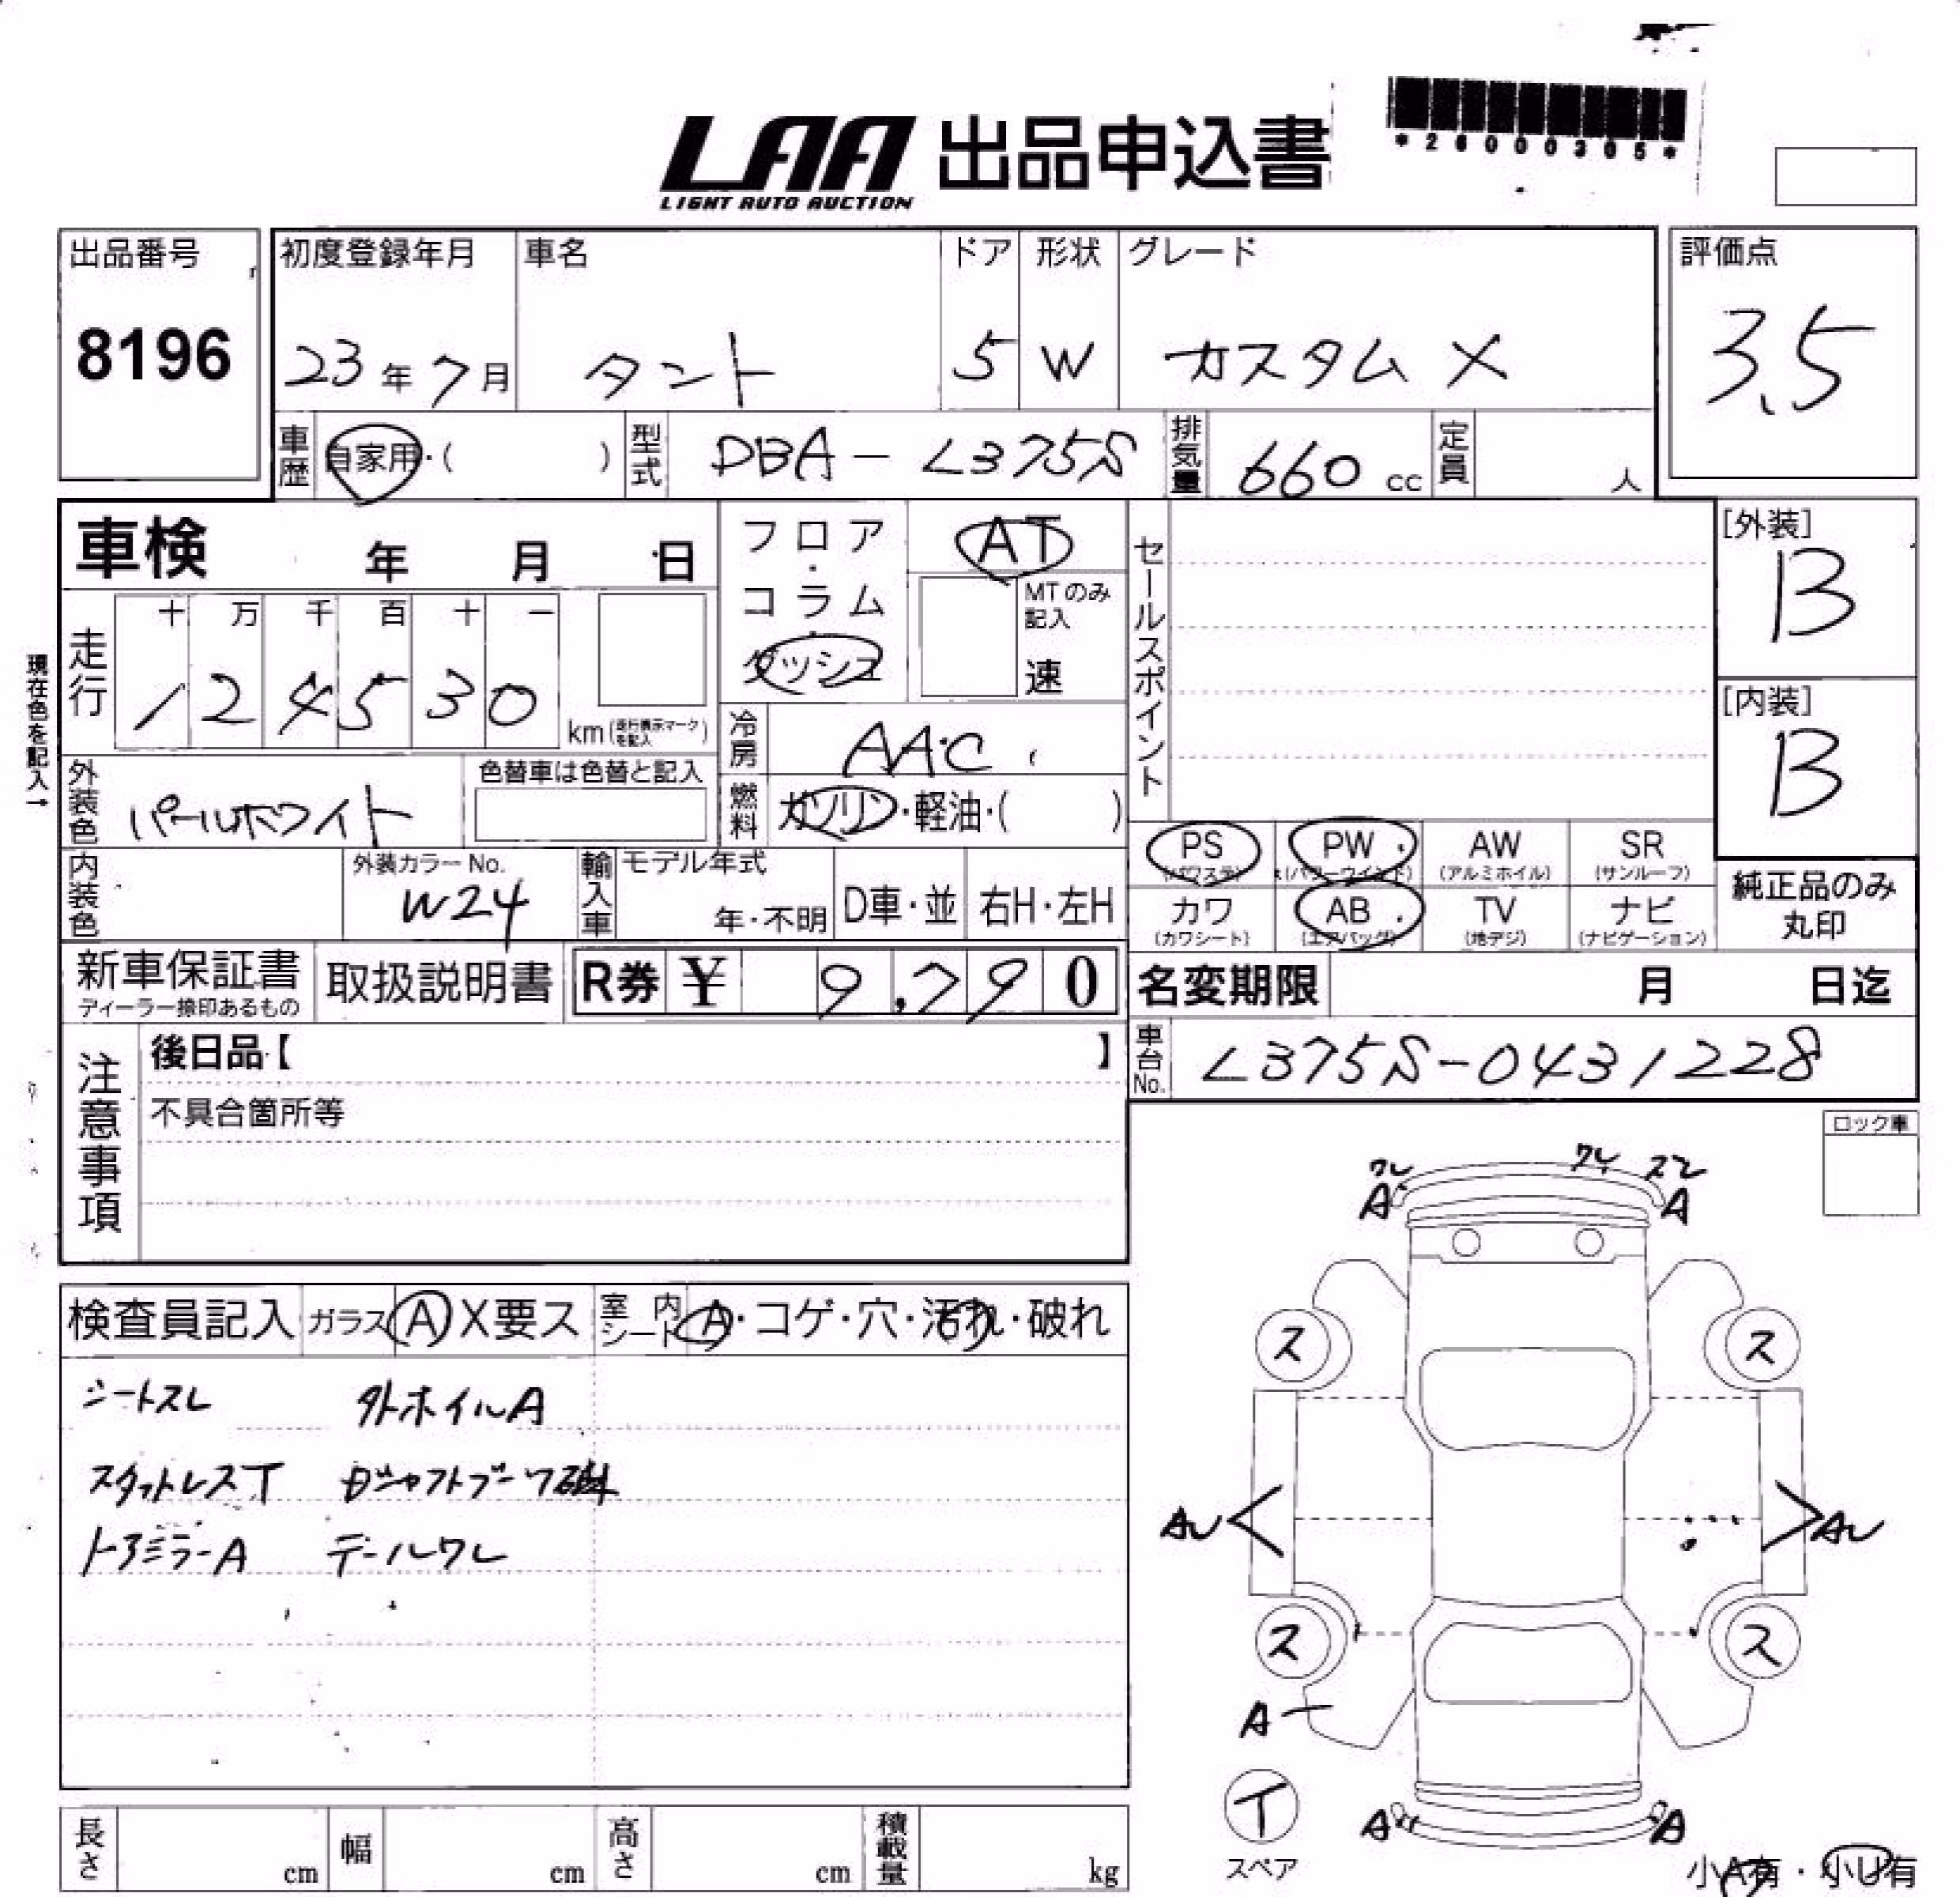 LAA 出品申込書
LIGHT AUTO AUCTION
*26000305*
出品番号
8196
初度登録年月
23年7月
車名
タント
ドア
5
形状
W
グレード
カスタム X
評価点
3.5
車歴
自家用・( )
型式
DBA-L375S
排気量
660 cc
定員
人
車検 年 月 日
フロア・コラム・ダッシュ
AT
MTのみ記入
速
セールスポイント
[外装]
B
[内装]
B
現在色を記入→
走行
十 万 千 百 十 一
1 2 4 5 3 0
km(走行表示マークを記入)
冷房
AAC
燃料
ガソリン・軽油・( )
外装色
パールホワイト
色替車は色替と記入
内装色
外装カラーNo.
W24
輸入車
モデル年式
年・不明
D車・並
右H・左H
PS
(パワステ)
PW
(パワーウインド)
AW
(アルミホイル)
SR
(サンルーフ)
カワ
(カワシート)
AB
(エアバッグ)
TV
(地デジ)
ナビ
(ナビゲーション)
純正品のみ
丸印
新車保証書
ディーラー捺印あるもの
取扱説明書
R券 ¥ 9,790
名変期限 月 日迄
車台No.
L375S-0431228
注意事項
後日品【 】
不具合箇所等
ロック車
検査員記入
ガラス A X要ス
室内シート A・コゲ・穴・汚れ・破れ
シートスレ 外ホイルA
スタットレスT
ドアミラーA テールワレ
ワレ
ワレ
スレ
A
A
ス
ス
ス
ス
A
T
スペア
A
A
小A有・小U有
長さ cm
幅 cm
高さ cm
積載量 kg